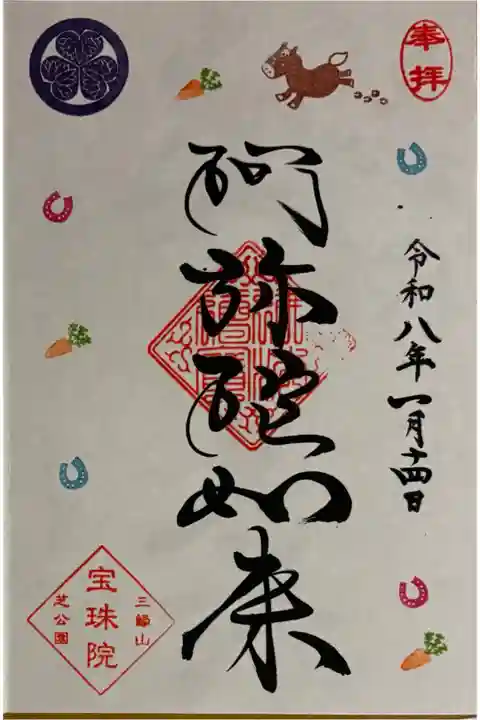 奉拝
令和八年一月十四日
阿弥陀如来
三縁山
宝珠院
芝公園